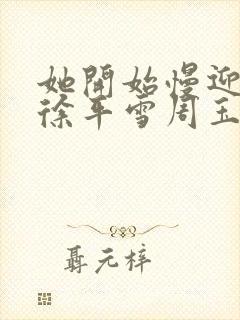 她開始慢迎
徐平雪周玉
聶元梓